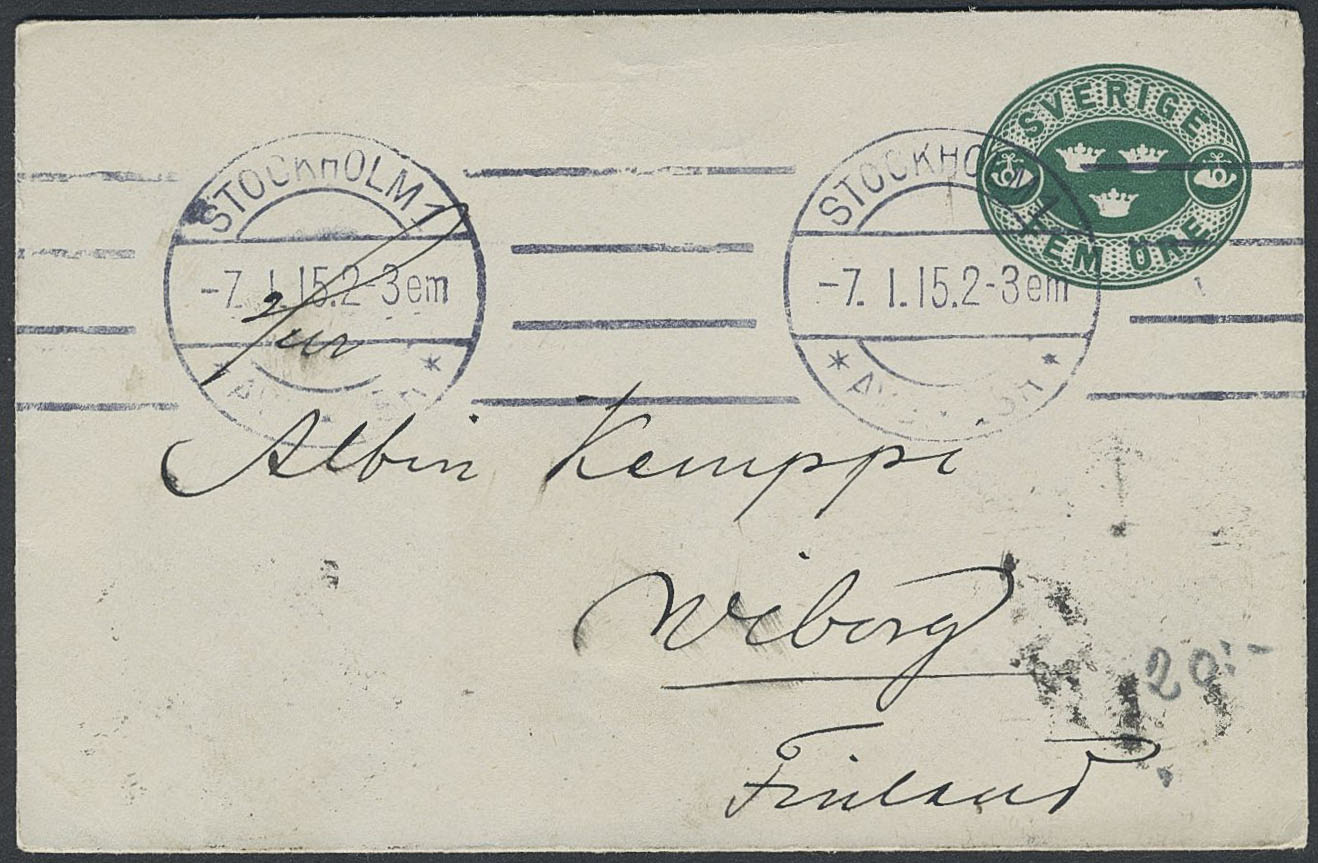 SVERIGE
FEM ÖRE
STOCKHOLM 1
-7. 1. 15. 2-3 em
STOCKHOLM 1
-7. 1. 15. 2-3 em
Albin Kemppi
Wiborg
Finland
20:-